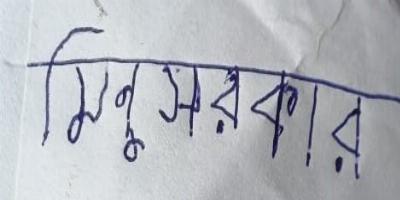 মিনু সরকার